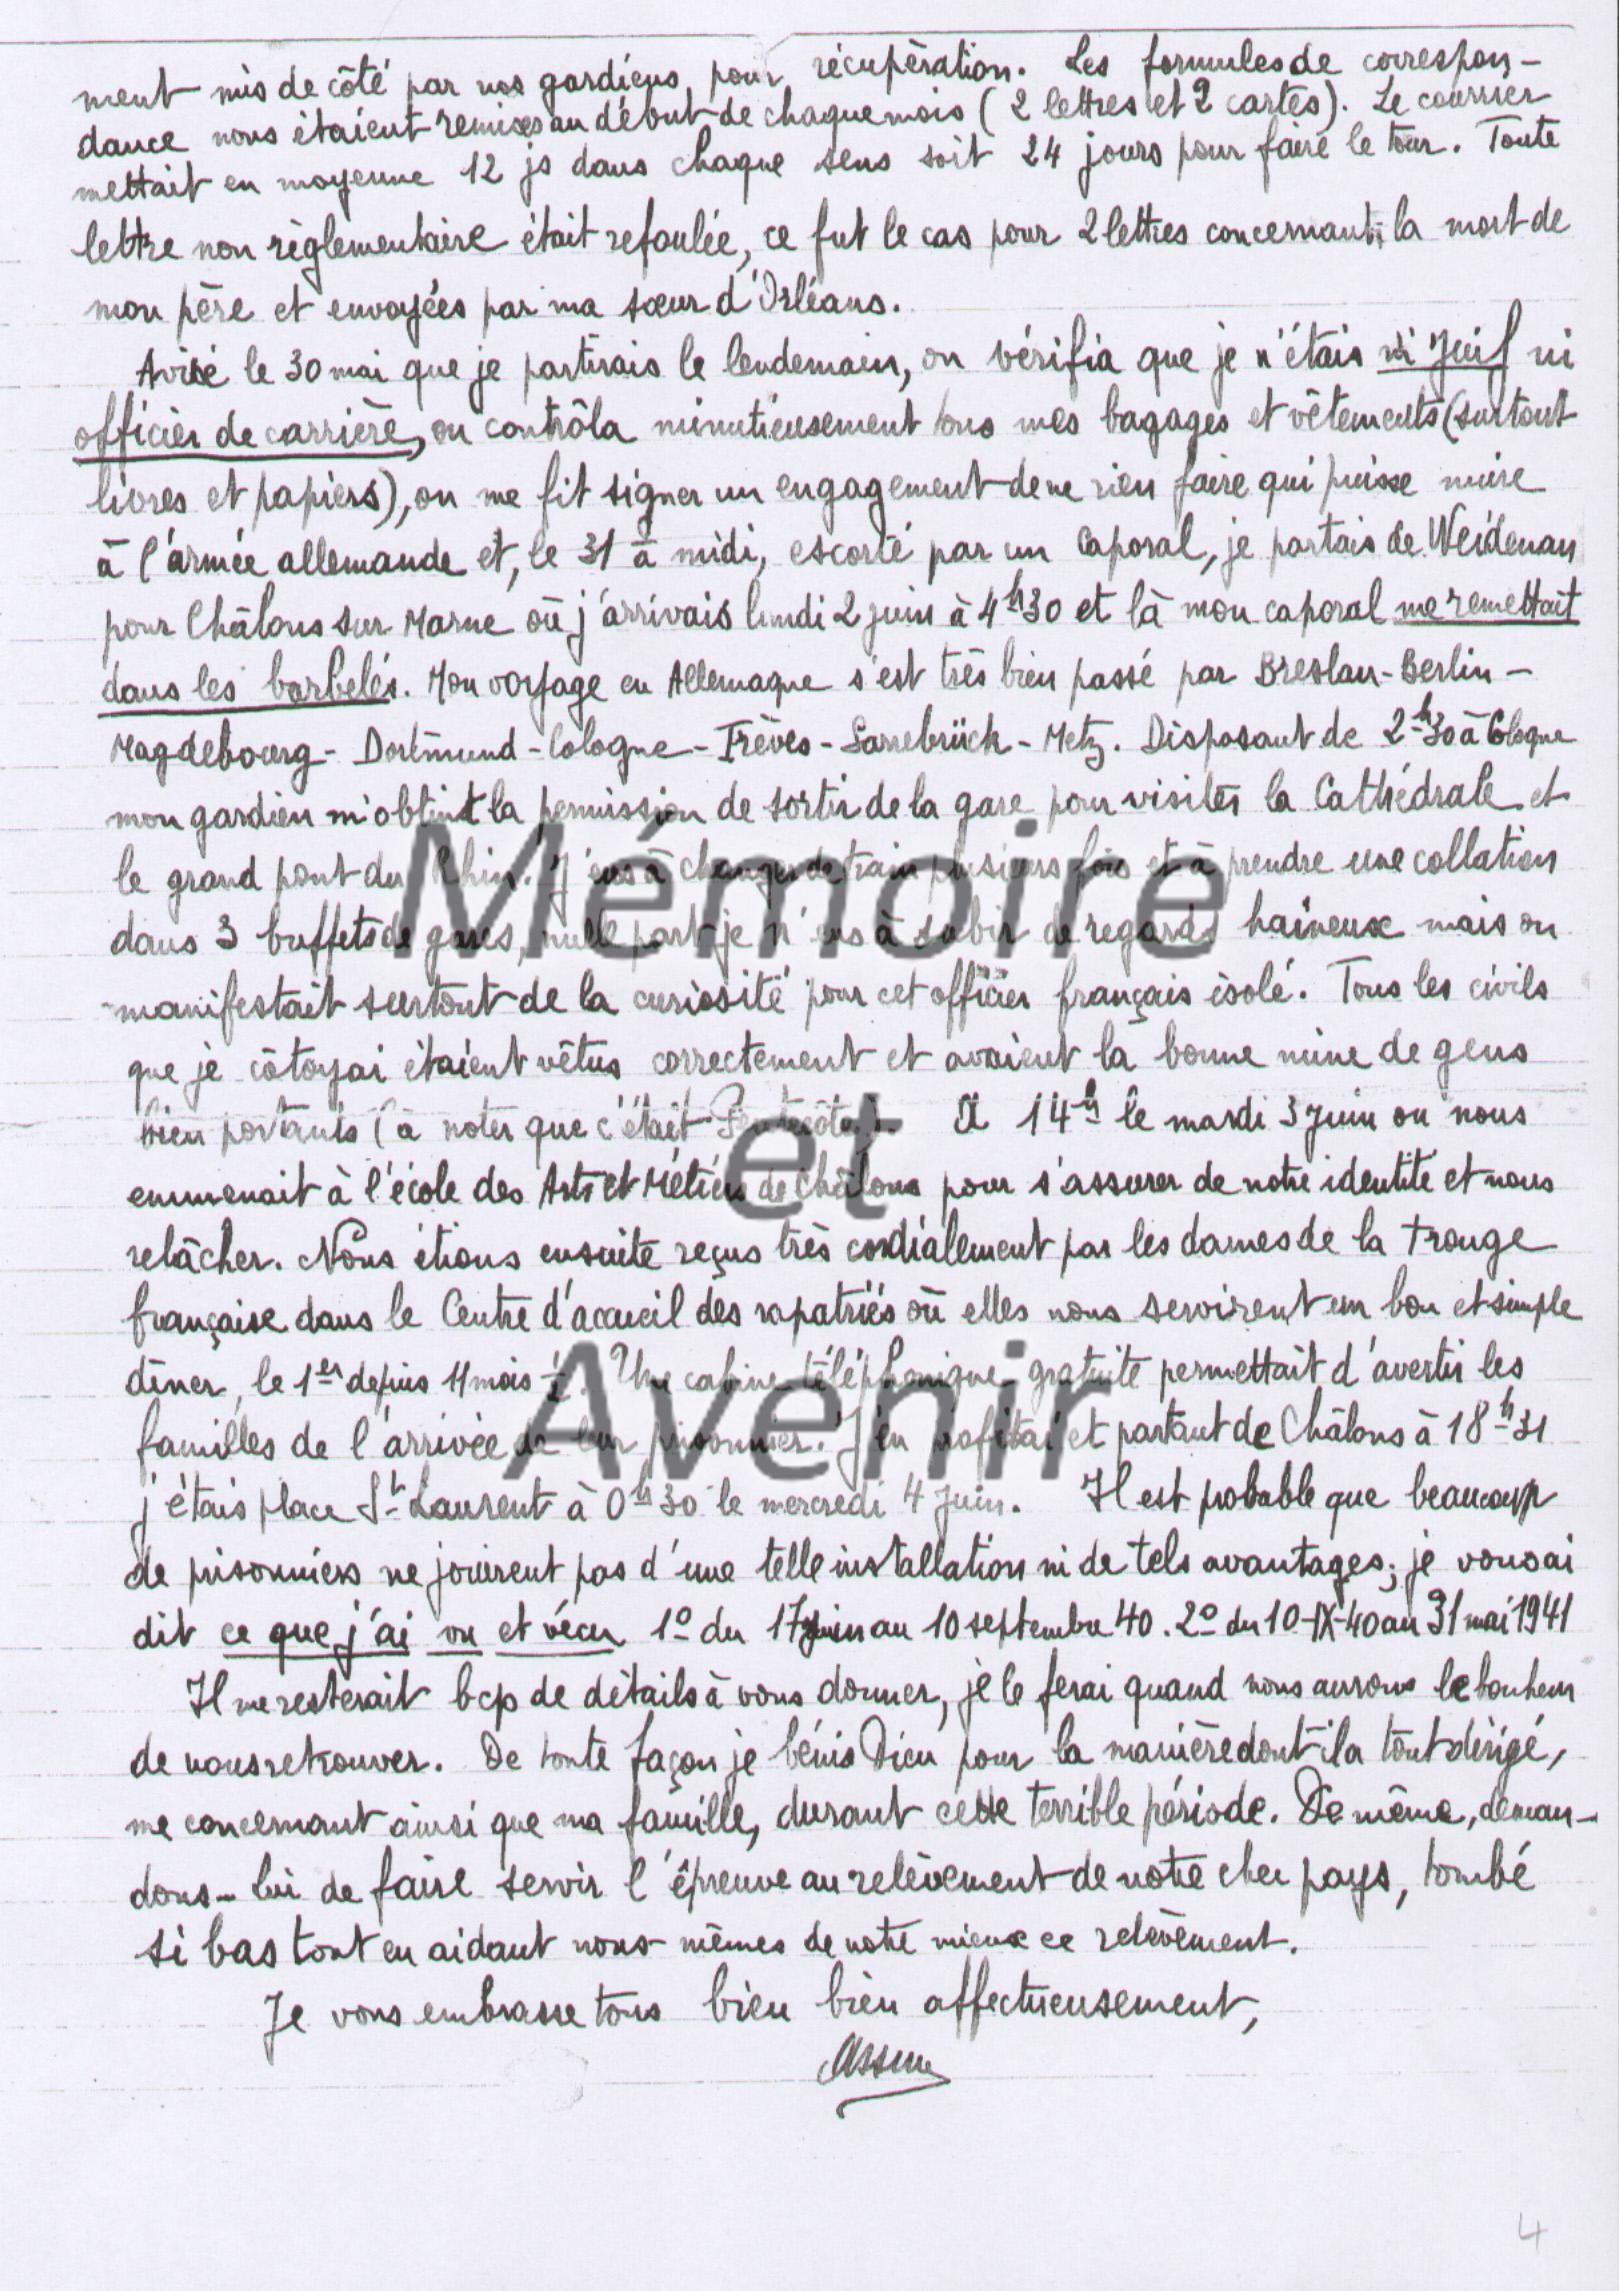 ment mis de côté par nos gardiens pour récupération. Les formules de correspon-
dance nous étaient remises au début de chaque mois (2 lettres et 2 cartes). Le courrier
mettait en moyenne 12 js dans chaque sens soit 24 jours pour faire le tour. Toute
lettre non règlementaire était refoulée, ce fut le cas pour 2 lettres concernant la mort de
mon père et envoyées par ma sœur d'Orléans.
Avisé le 30 mai que je partirais le lendemain, on vérifia que je n'étais ni Juif ni
officier de carrière, on contrôla minutieusement tous mes bagages et vêtements (surtout
livres et papiers), on me fit signer un engagement de ne rien faire qui puisse nuire
à l'armée allemande et, le 31 à midi, escorté par un Caporal, je partais de Weidenau
pour Châlons sur Marne où j'arrivais lundi 2 juin à 4h30 et là mon caporal me remettait
dans les barbelés. Mon voyage en Allemagne s'est très bien passé par Breslau-Berlin-
Magdebourg - Dortmund - Cologne - Trèves - Sarrebrück - Metz. Disposant de 2h30 à Cologne
mon gardien m'obtint la permission de sortir de la gare pour visiter la Cathédrale et
le grand pont du Rhin. J'eus à changer de train plusieurs fois et à prendre une collation
dans 3 buffets de gares, nulle part je n'eus à subir de regards haineux mais on
manifestait surtout de la curiosité pour cet officier français isolé. Tous les civils
que je côtoyai étaient vêtus correctement et avaient la bonne mine de gens
bien portants (à noter que c'était Pentecôte). A 14h le mardi 3 Juin on nous
emmenait à l'école des Arts et Métiers de Châlons pour s'assurer de notre identité et nous
relâcher. Nous étions ensuite reçus très cordialement par les dames de la + rouge
française dans le Centre d'accueil des rapatriés où elles nous servirent un bon et simple
dîner, le 1er depuis 11 mois ½. Une cabine téléphonique gratuite permettait d'avertir les
familles de l'arrivée de leur prisonnier. J'en profitai et partant de Châlons à 18h31
j'étais place St Laurent à 0h30 le mercredi 4 Juin. Il est probable que beaucoup
de prisonniers ne jouirent pas d'une telle installation ni de tels avantages; je vous ai
dit ce que j'ai vu et vécu 1º du 17 juin au 10 septembre 40. 2º du 10-IX-40 au 31 mai 1941
Il me resterait bcp de détails à vous donner, je le ferai quand nous aurons le bonheur
de nous retrouver. De toute façon je bénis Dieu pour la manière dont il a tout dirigé,
me concernant ainsi que ma famille, durant cette terrible période. De même, deman-
dons-lui de faire servir l'épreuve au relèvement de notre cher pays, tombé
si bas tout en aidant nous-mêmes de notre mieux ce relèvement.
Je vous embrasse tous bien bien affectueusement,
4
Mémoire
et
Avenir